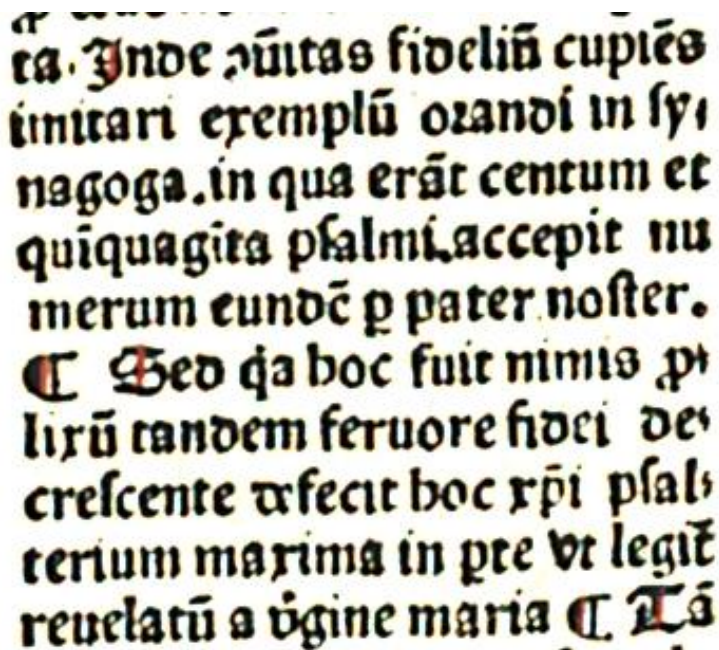 ta. Inde ꝯūitas fideliū cupiēs
imitari exemplū orandi in ſy⸗
nagoga. in qua erāt centum et
quīquagīta pſalmi. accepit nu
merum eundē ꝑ pater noſter.
¶ Sed q̇a hoc fuit nimis ꝓ⸗
lixū tandem feruore fidei de⸗
creſcente defecit hoc xp̄i pſal⸗
terium maxima in ꝑte vt legit̄
reuelatū a v̇gine maria ¶ Tā